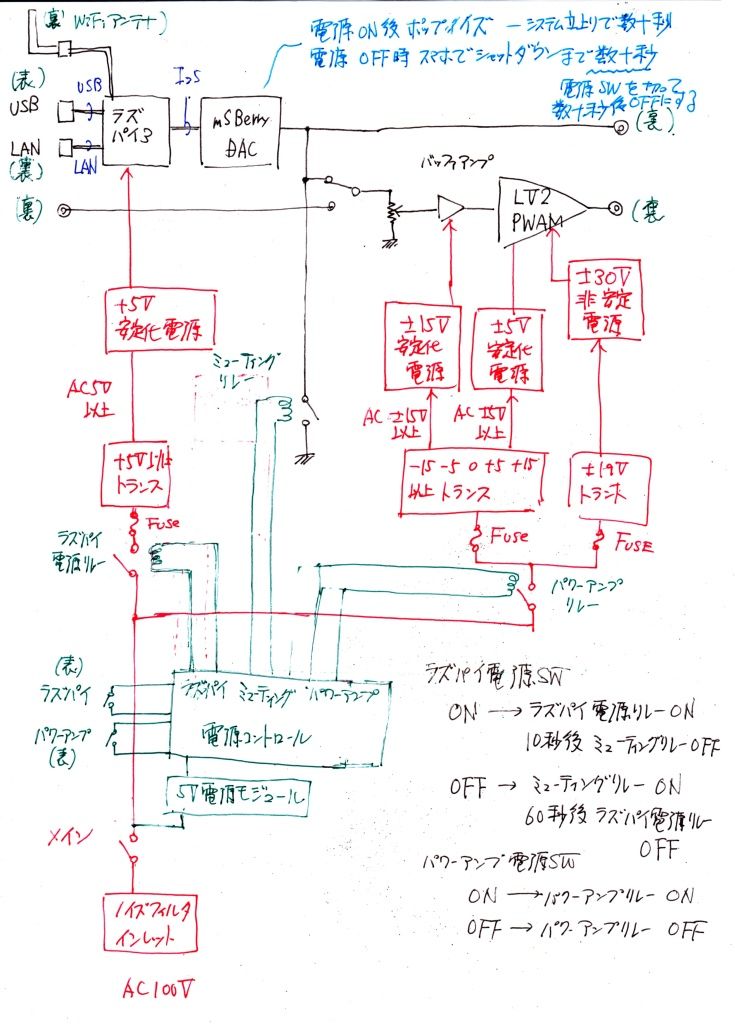 (裏) WiFiアンテナ
電源ON後 ポップノイズ ― システム立上りで数十秒
電源OFF時 スマホでシャットダウンまで数十秒
電源SWを切って
数十秒後OFFにする
(表)
USB
USB
I2S
LAN
(裏)
LAN
ラズ
パイ3
mSBerry
DAC
(裏)
(裏)
バッファアンプ
LV2
PWAM
(裏
+5V
安定化電源
±15V
安定化
電源
±5V
安定化
電源
±30V
非安定
電源
ミューティング
リレー
AC5V
以上
AC±15V
以上
AC±5V
以上
+5V以上
トランス
-15 -5 0 +5 +15
以上トランス
±19V
トランス
Fuse
Fuse
FUSE
ラズパイ
電源リレー
パワーアンプ
リレー
(表)
ラズパイ
パワーアンプ
(表)
ラズパイ ミューティング パワーアンプ
電源コントロール
5V電源モジュール
メイン
ノイズフィルタ
インレット
AC100V
ラズパイ電源SW
ON → ラズパイ電源リレーON
10秒後 ミューティングリレーOFF
OFF → ミューティングリレー ON
60秒後 ラズパイ電源リレー
OFF
パワーアンプ電源SW
ON → パワーアンプリレー ON
OFF → パワーアンプリレー OFF